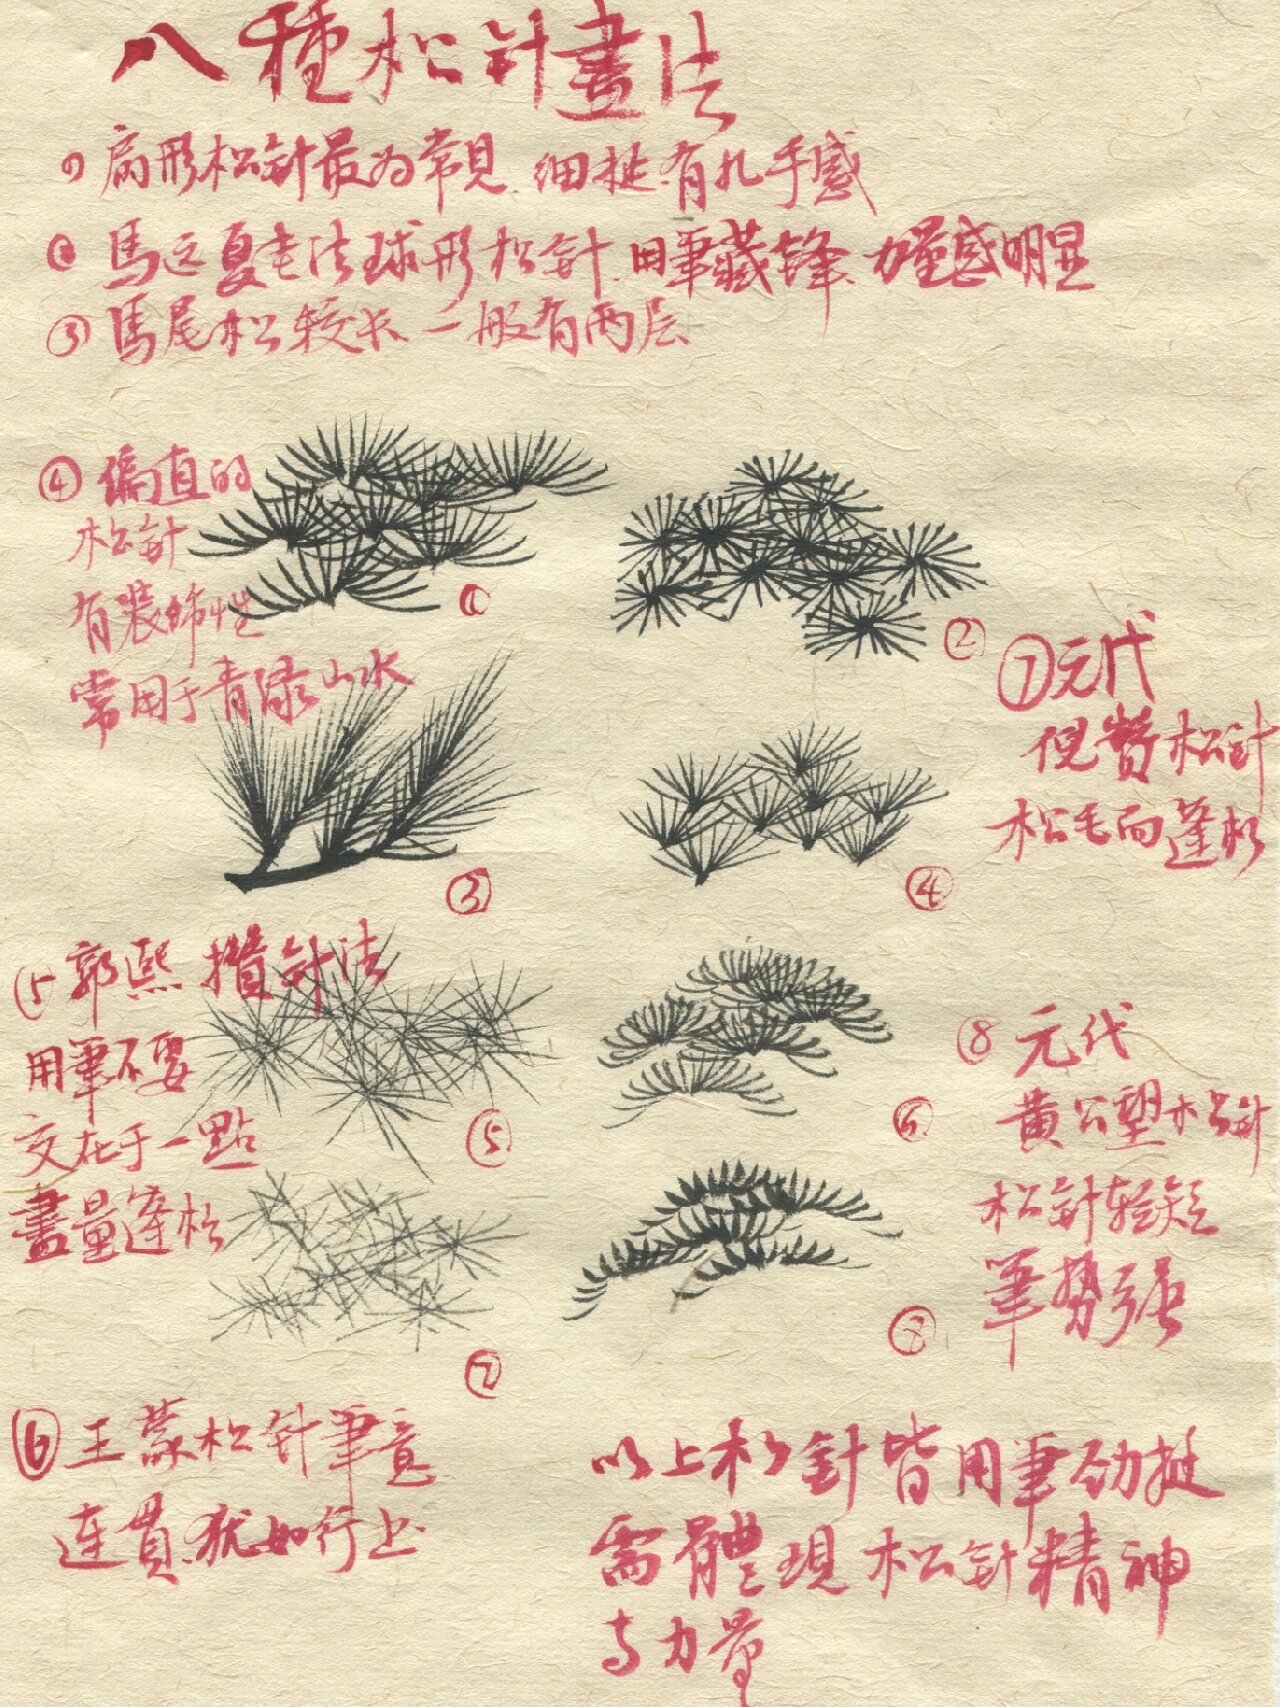 八種松針畫法
① 扇形松針最为常見 細挺 有扎手感
② 馬远夏圭法球形松針 用筆藏锋 力量感明显
③ 馬尾松較长 一般有两层
④ 偏直的
松針
有装饰性
常用于青绿山水
①
②
③
④
⑤ 郭熙 攢針法
用筆不要
交在于一點
畫量蓬松
⑤
⑥
⑦
⑧
⑥ 王蒙松針筆意
连貫 犹如行书
⑦ 元代
倪瓒松針
松毛而蓬松
⑧ 元代
黄公望松針
松針較短
筆势强
以上松針皆用筆劲挺
需體現松針精神
与力量